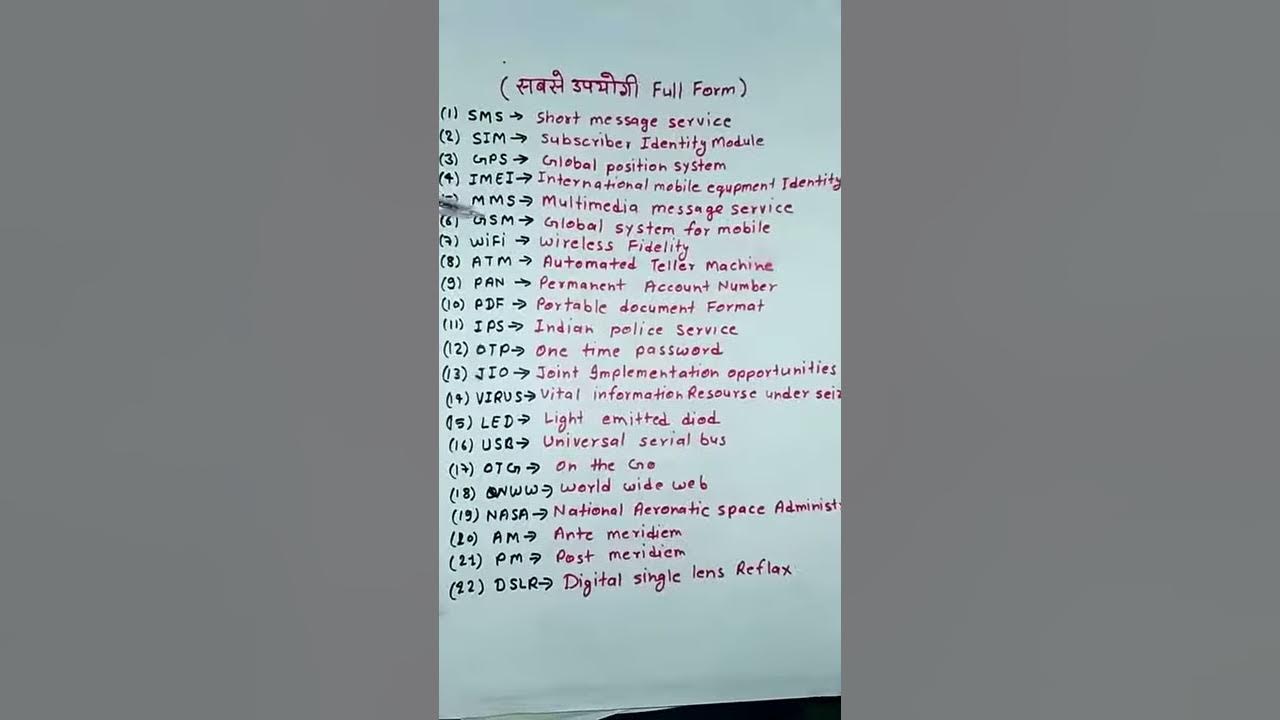 (सबसे उपयोगी Full Form)
(1) SMS → Short message service
(2) SIM → Subscriber Identity Module
(3) GPS → Global position system
(4) IMEI → International mobile equpment Identity
MMS → Multimedia message service
(6) GSM → Global system for mobile
(7) WiFi → Wireless Fidelity
(8) ATM → Automated Teller Machine
(9) PAN → Permanent Account Number
(10) PDF → Portable document Format
(11) IPS → Indian police Service
(12) OTP → One time password
(13) JIO → Joint Implementation opportunities
(14) VIRUS → Vital information Resourse under seiz
(15) LED → Light emitted diod
(16) USB → Universal serial bus
(17) OTG → On the Go
(18) WWW → World wide web
(19) NASA → National Aeronatic space Administr
(20) AM → Ante meridiem
(21) PM → Post meridiem
(22) DSLR → Digital single lens Reflax